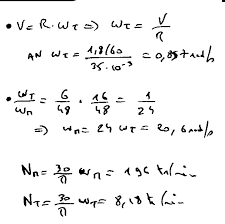 • V = R . ωT ⇒ ωT = V/R
AN ωT = (1,8/60)/(35.10⁻³) = 0,857 rad/s
• ωT/ωn = 6/48 . 16/48 = 1/24
⇒ ωn = 24 ωT = 20,6 rad/s
Nn = 30/π ωn = 196 tr/min
NT = 30/π ωT = 8,18 tr/min